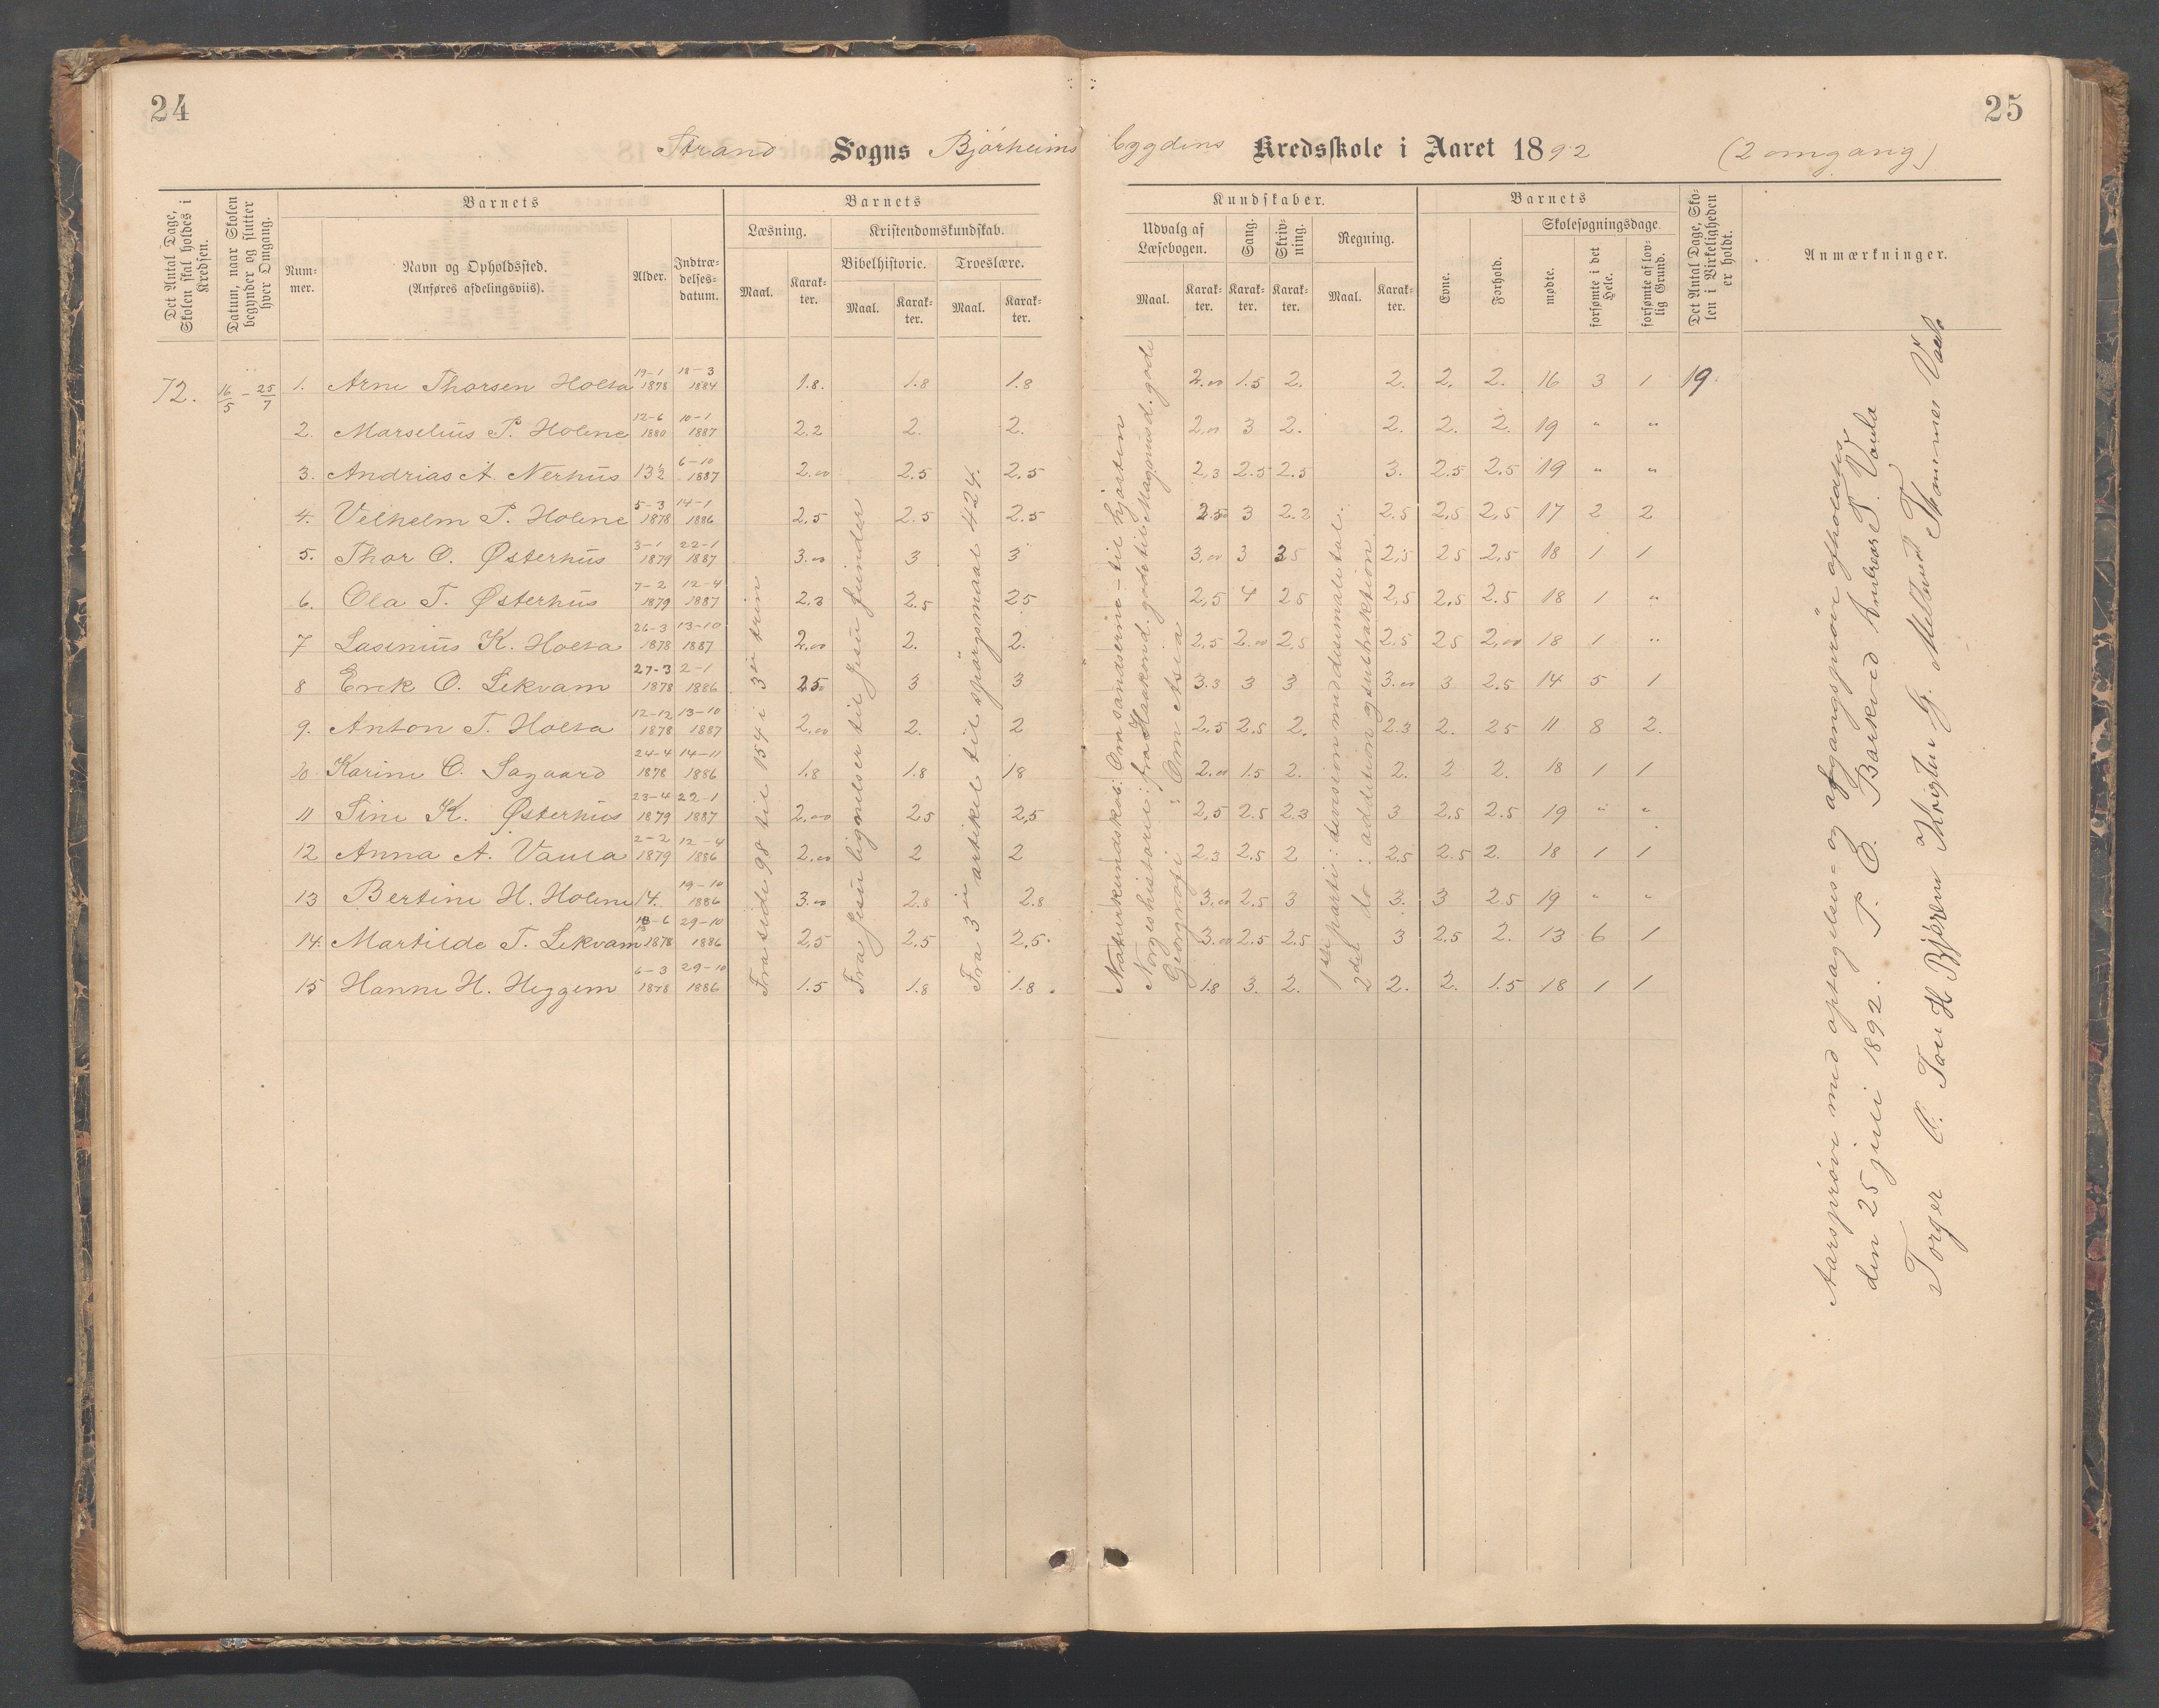 24
25
Strand Sogns Bjørheims bygdens Kredsskole i Aaret 1892 (2 omgang)
Det Antal Dage, Skolen skal holdes i Kredsen.
Datum, naar Skolen begynder og slutter hver Omgang.
Barnets
Num-mer.
Navn og Opholdssted. (Anføres afdelingsviis).
Alder.
Indtræ-delses-datum.
Barnets
Læsning.
Maal.
Karak-ter.
Kristendomskundskab.
Bibelhistorie.
Maal.
Karak-ter.
Troeslære.
Maal.
Karak-ter.
Kundskaber.
Udvalg af Læsebogen.
Maal.
Karak-ter.
Sang.
Karak-ter.
Skriv-ning.
Karak-ter.
Regning.
Maal.
Karak-ter.
Barnets
Evne.
Forhold.
Skolesøgningsdage
mødte.
forsømte i det Hele.
forsømte af lov-lig Grund.
Det Antal Dage, Sko-len i Virkeligheden er holdt.
Anmærkninger.
72. 16/5 – 25/7 1. Arne Thorsen Holta 19-1 1878 18-3 1884 1.8. 1.8 1.8 2.00 1.5 2. 2. 2. 2. 16 3 1 19.
2. Marselius P. Holene 12-6 1880 10-1 1887 2.2 2. 2. 2.00 3 2. 2. 2. 2. 19 " "
3. Andrias A. Nerhus 13½ 6-10 1887 2.00 2.5 2.5 2.3 2.5 2.5 3. 2.5 2.5 19 " "
4. Velhelm P. Holene 5-3 1878 14-1 1886 2.5 2.5 2.5 2.5 3 2.2 2.5 2.5 2.5 17 2 2
5. Thor O. Østerhus 3-1 1879 22-1 1887 3.00 3 3 3.00 3 2.5 2.5 2.5 18 1 1
6. Ola T. Østerhus 7-2 1879 12-4 1887 2.3 2.5 2.5 2.5 4 2.5 2.5 2.5 2.5 18 1 "
7 Lasenius K. Holta 26-3 1878 13-10 1887 2.00 2. 2. 2.5 2.00 2.5 2.5 2.5 2.00 18 1 "
8 Erek O. Lekvam 27-3 1878 2-1 1886 2.5 3 3 3.3 3 3 3.00 3 2.5 14 5 1
9. Anton T. Holta 12-12 1878 13-10 1887 2.00 2. 2 2.5 2.5 2. 2.3 2. 2.5 11 8 2.
10. Karine O. Sagaard 24-4 1878 14-11 1886 1.8 1.8 1.8 2.00 1.5 2. 2. 2 2. 18 1 1
11 Sine K. Østerhus 23-4 1879 22-1 1887 2.00 2.5 2.5 2.5 2.5 2.3 3 2.5 2.5 19 " "
12 Anna A. Vaula 2-2 1879 12-4 1886 2.00 2 2 2.3 2.5 2 2.5 2.5 2. 18 1 1
13 Bertine H. Holene 14. 19-10 1886 3.00 2.8 2.8 3.00 2.5 3 3. 3 2.5 19 " "
14. Martilde T. Lekvam 1878 29-10 1886 2.5 2.5 2.5. 3.00 2.5 2.5 3 2.5 2. 13 6 1
15 Hanne H. Heggem 6-3 1878 29-10 1886 1.5 1.8 1.8. 1.8 3. 2. 2. 2. 1.5 18 1 1
Fra side 98 til 154 i 3die trin
Fra Jesu lignelser til Jesu fiender
Fra 3die artikel til spørgsmaal 424.
Naturkundskab: Om sandserne – til hjorten
Norgeshistorie: fra Haakon d. gode til Magnus d. gode
Geografi : Om Asia
1ste parti: devision med desimaltal.
2det do : addition og subtraktion
Aarsprøve med optagelses- og afgangsprøve afholdtes
den 25 juli 1892. T. E. Barkved Andreas T. Vaula
Torger O. Tou H Bjøreim G. Thommes